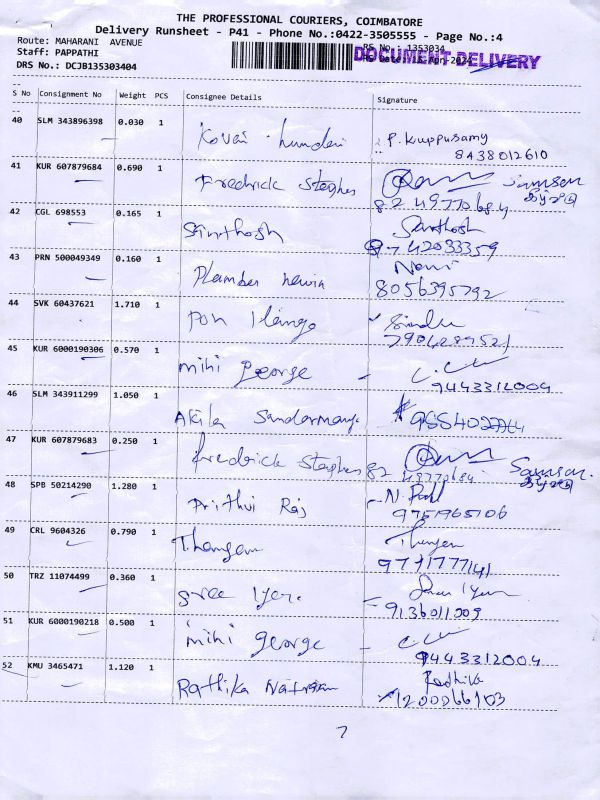 THE PROFESSIONAL COURIERS, COIMBATORE
Delivery Runsheet - P41 - Phone No.:0422-3505555 - Page No.:4
Route: MAHARANI AVENUE
RS No.: 1353034
Staff: PAPPATHI
RS Date: 18-Apr-2024
DOCUMENT DELIVERY
DRS No.: DCJB135303404
S No Consignment No Weight PCS Consignee Details Signature
40 SLM 343896398 0.030 1 Kovai P. Kuppusamy
8438012610
41 KUR 607879684 0.690 1 Fredrick Stephen Samson
42 CGL 698553 0.165 1 Santhosh Santhosh
9742033359
43 PRN 500049349 0.160 1 Plamber
8056395792
44 SVK 60437621 1.710 1 Pon Ilango Sindu
45 KUR 6000190306 0.570 1 mini george
9443312004
46 SLM 343911299 1.050 1 Akila
47 KUR 607879683 0.250 1 Fredrick Stephen Samson
48 SPB 50214290 1.280 1 Prithvi Raj
9751965106
49 CRL 9604326 0.790 1 Thangam
9771777141
50 TRZ 11074499 0.360 1 Sree Iyer
9136011009
51 KUR 6000190218 0.500 1 mini george
9443312004
52 KMU 3465471 1.120 1 Rathika Radhika
7200066103
7